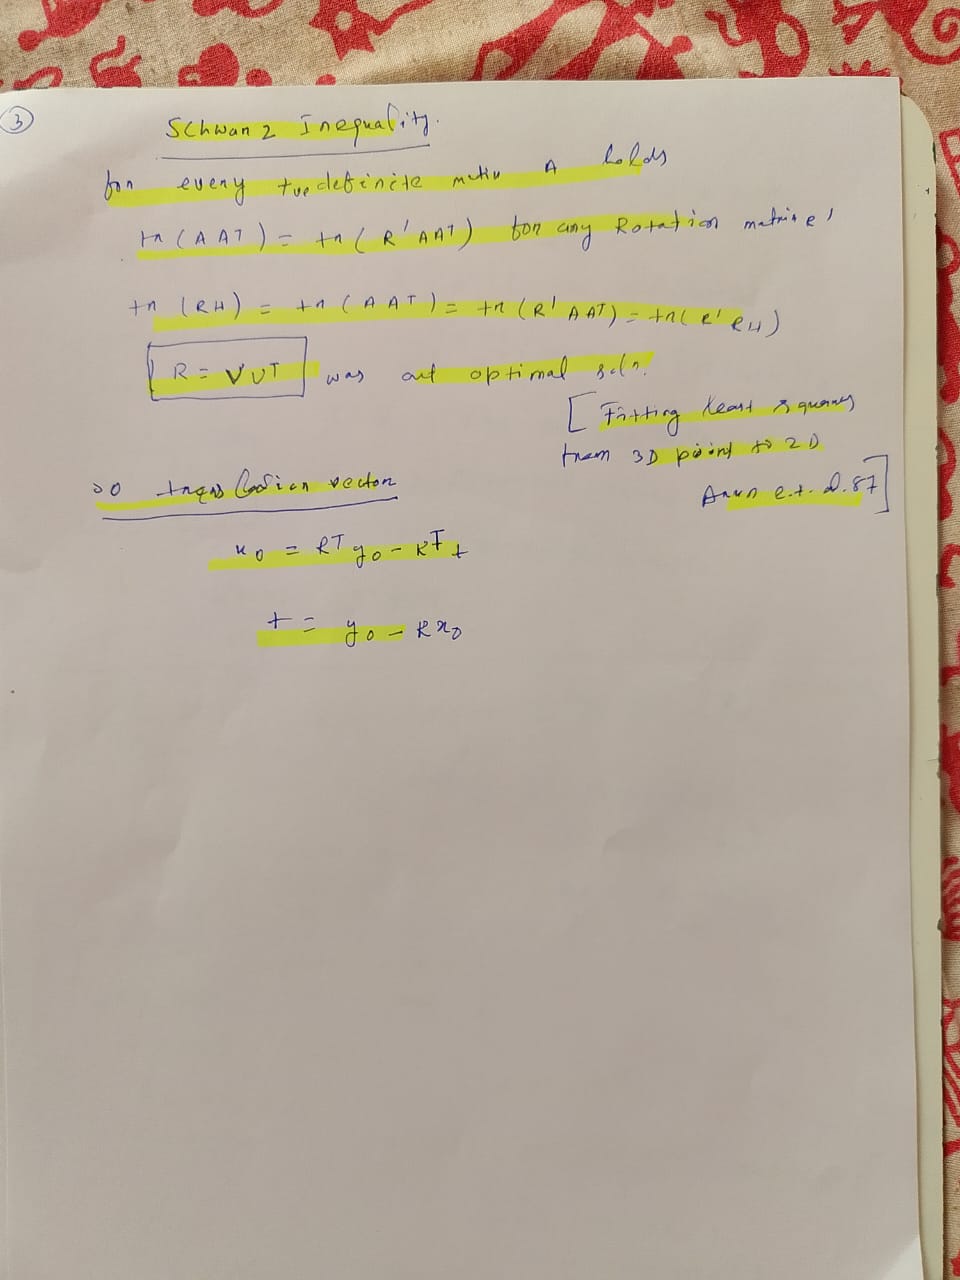 3
Schwarz Inequality.
for every +ve definite matrix A holds
tr (A AT) = tr (R' AAT) for any Rotation matrix R'
tr (RH) = tr (A AT) = tr (R' AAT) = tr (R' RH)
R = VUT was out optimal soln.
[Fitting least squares
from 3D point to 2D
Arun e.t. al. 87]
so translation vector
x0 = RT y0 - RT t
t = y0 - R x0